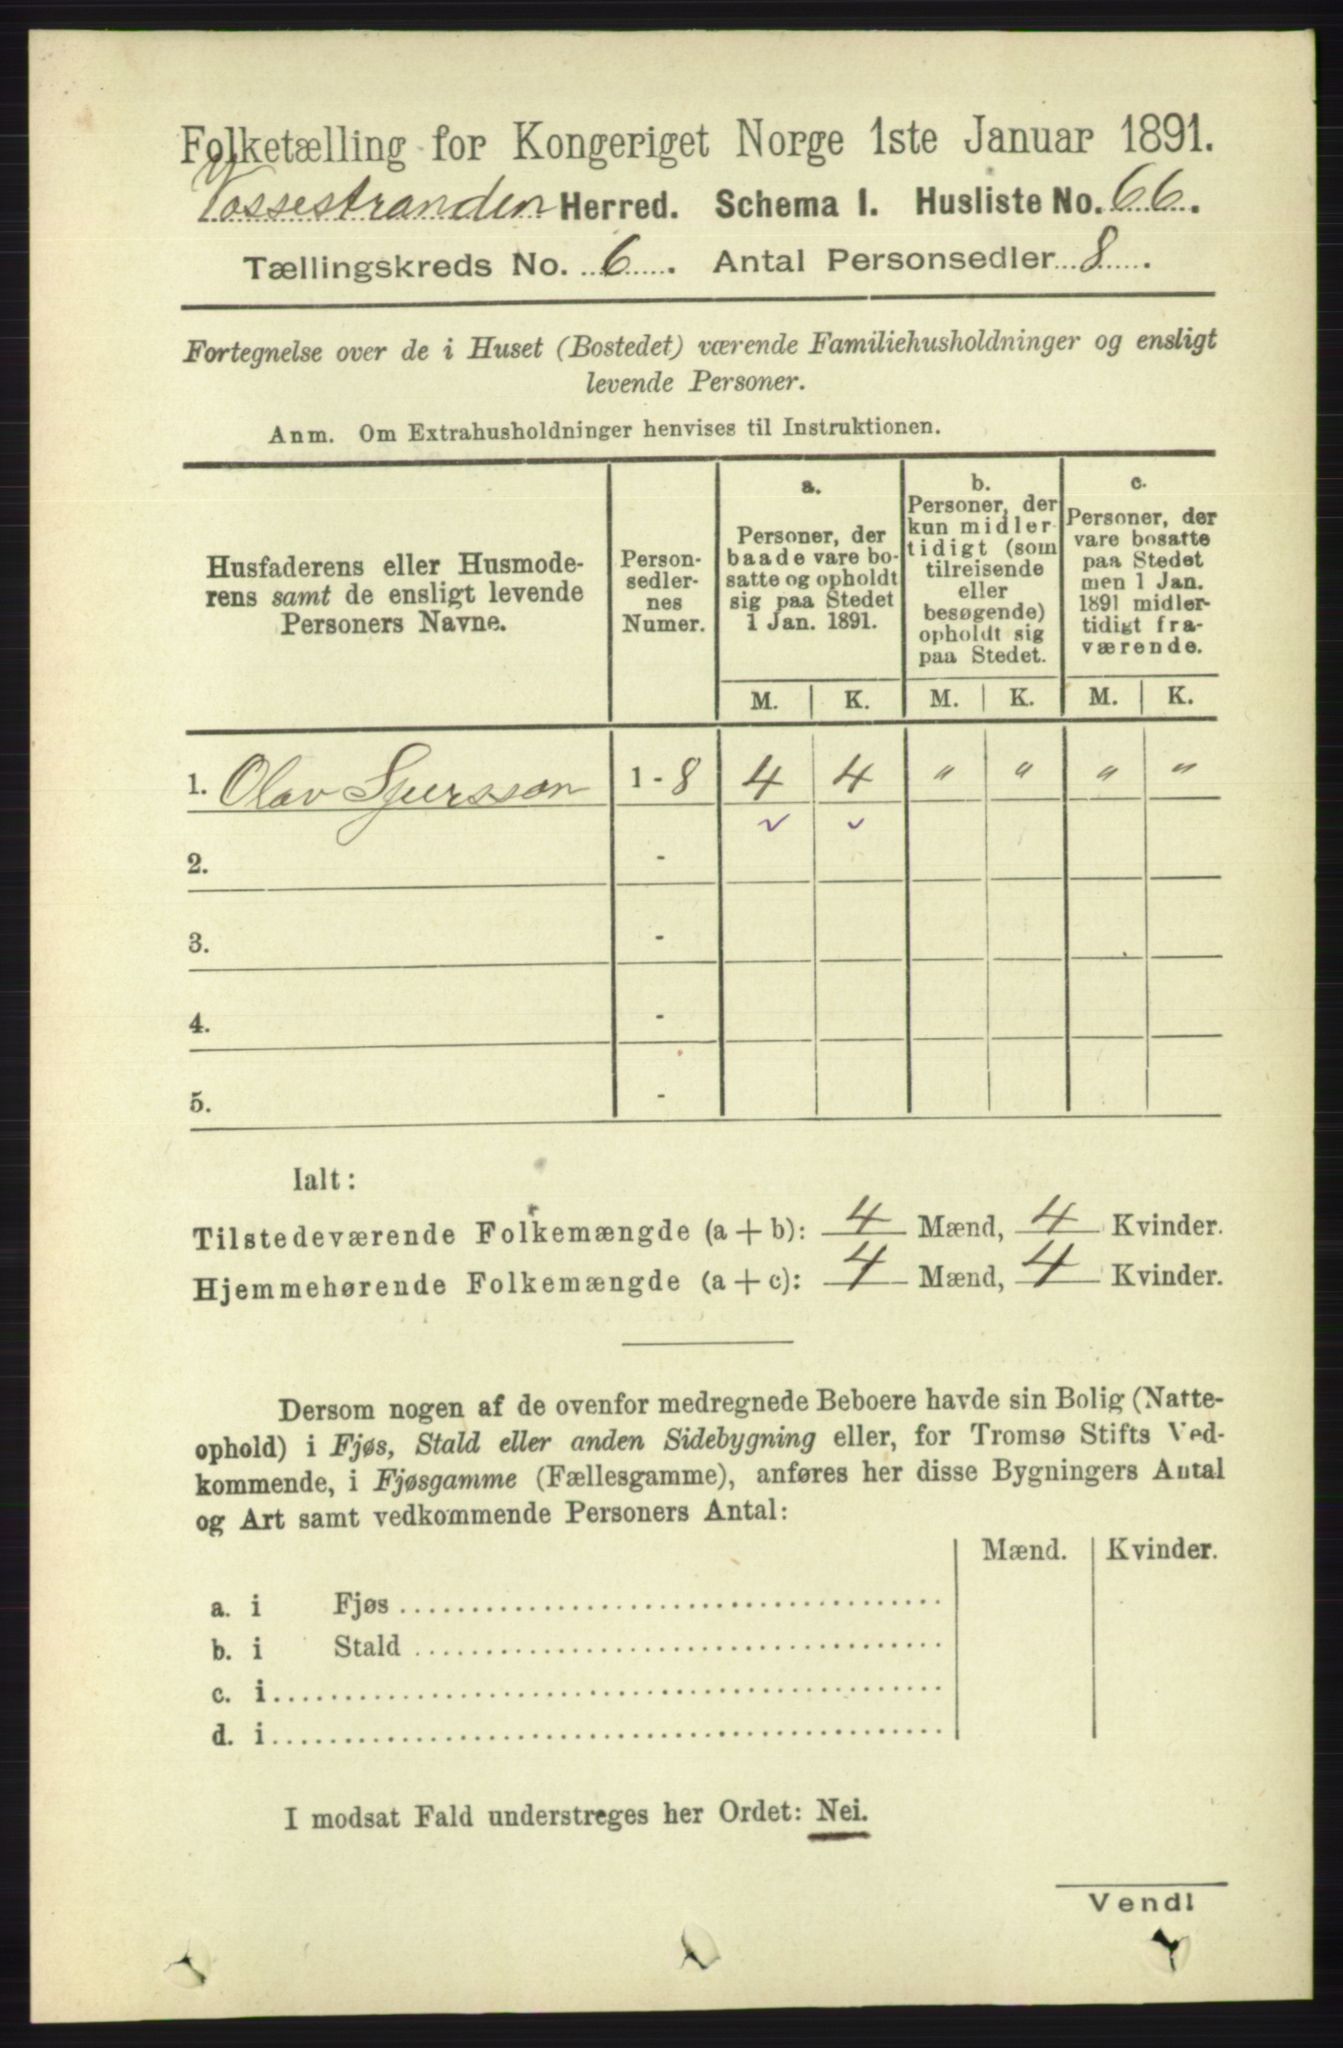 Folketælling for Kongeriget Norge 1ste Januar 1891.
Vossestranden Herred. Schema I. Husliste No. 66.
Tællingskreds No. 6. Antal Personsedler 8.
Fortegnelse over de i Huset (Bostedet) værende Familiehusholdninger og ensligt
levende Personer.
Anm. Om Extrahusholdninger henvises til Instruktionen.
Husfaderens eller Husmode-
rens samt de ensligt levende
Personers Navne.
Person-
sedler-
nes
Numer.
a.
Personer, der
baade vare bo-
satte og opholdt
sig paa Stedet
1 Jan. 1891.
b.
Personer, der
kun midler-
tidigt (som
tilreisende
eller
besøgende)
opholdt sig
paa Stedet.
c.
Personer, der
vare bosatte
paa Stedet
men 1 Jan.
1891 midler-
tidigt fra-
værende.
M. K. M. K. M. K.
1. Olav Sjursson 1 - 8 4 4 " " " "
2. -
3. -
4. -
5. -
Ialt:
Tilstedeværende Folkemængde (a + b): 4 Mænd, 4 Kvinder.
Hjemmehørende Folkemængde (a + c): 4 Mænd, 4 Kvinder.
Dersom nogen af de ovenfor medregnede Beboere havde sin Bolig (Natte-
ophold) i Fjøs, Stald eller anden Sidebygning eller, for Tromsø Stifts Ved-
kommende, i Fjøsgamme (Fællesgamme), anføres her disse Bygningers Antal
og Art samt vedkommende Personers Antal:
Mænd. Kvinder.
a. i Fjøs
b. i Stald
c. i
d. i
I modsat Fald understreges her Ordet: Nei.
Vend!